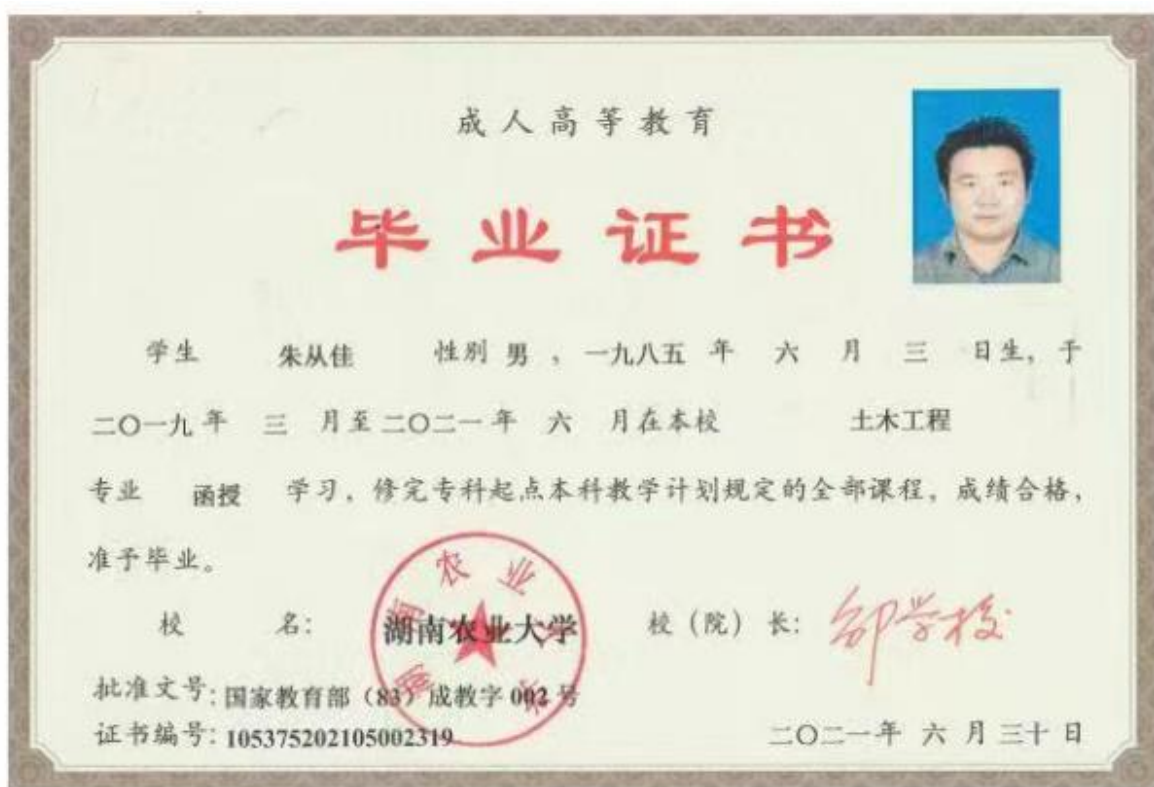 成人高等教育
毕业证书
学生 朱从佳 性别 男 ，一九八五 年 六 月 三 日生，于
二〇一九 年 三 月至 二〇二一 年 六 月在本校 土木工程
专业 函授 学习，修完专科起点本科教学计划规定的全部课程，成绩合格，
准予毕业。
校 名： 湖南农业大学 校（院）长： 邹学校
湖南农业大学
批准文号：国家教育部（83）成教字 002 号
证书编号：105375202105002319
二〇二一年 六 月 三十 日